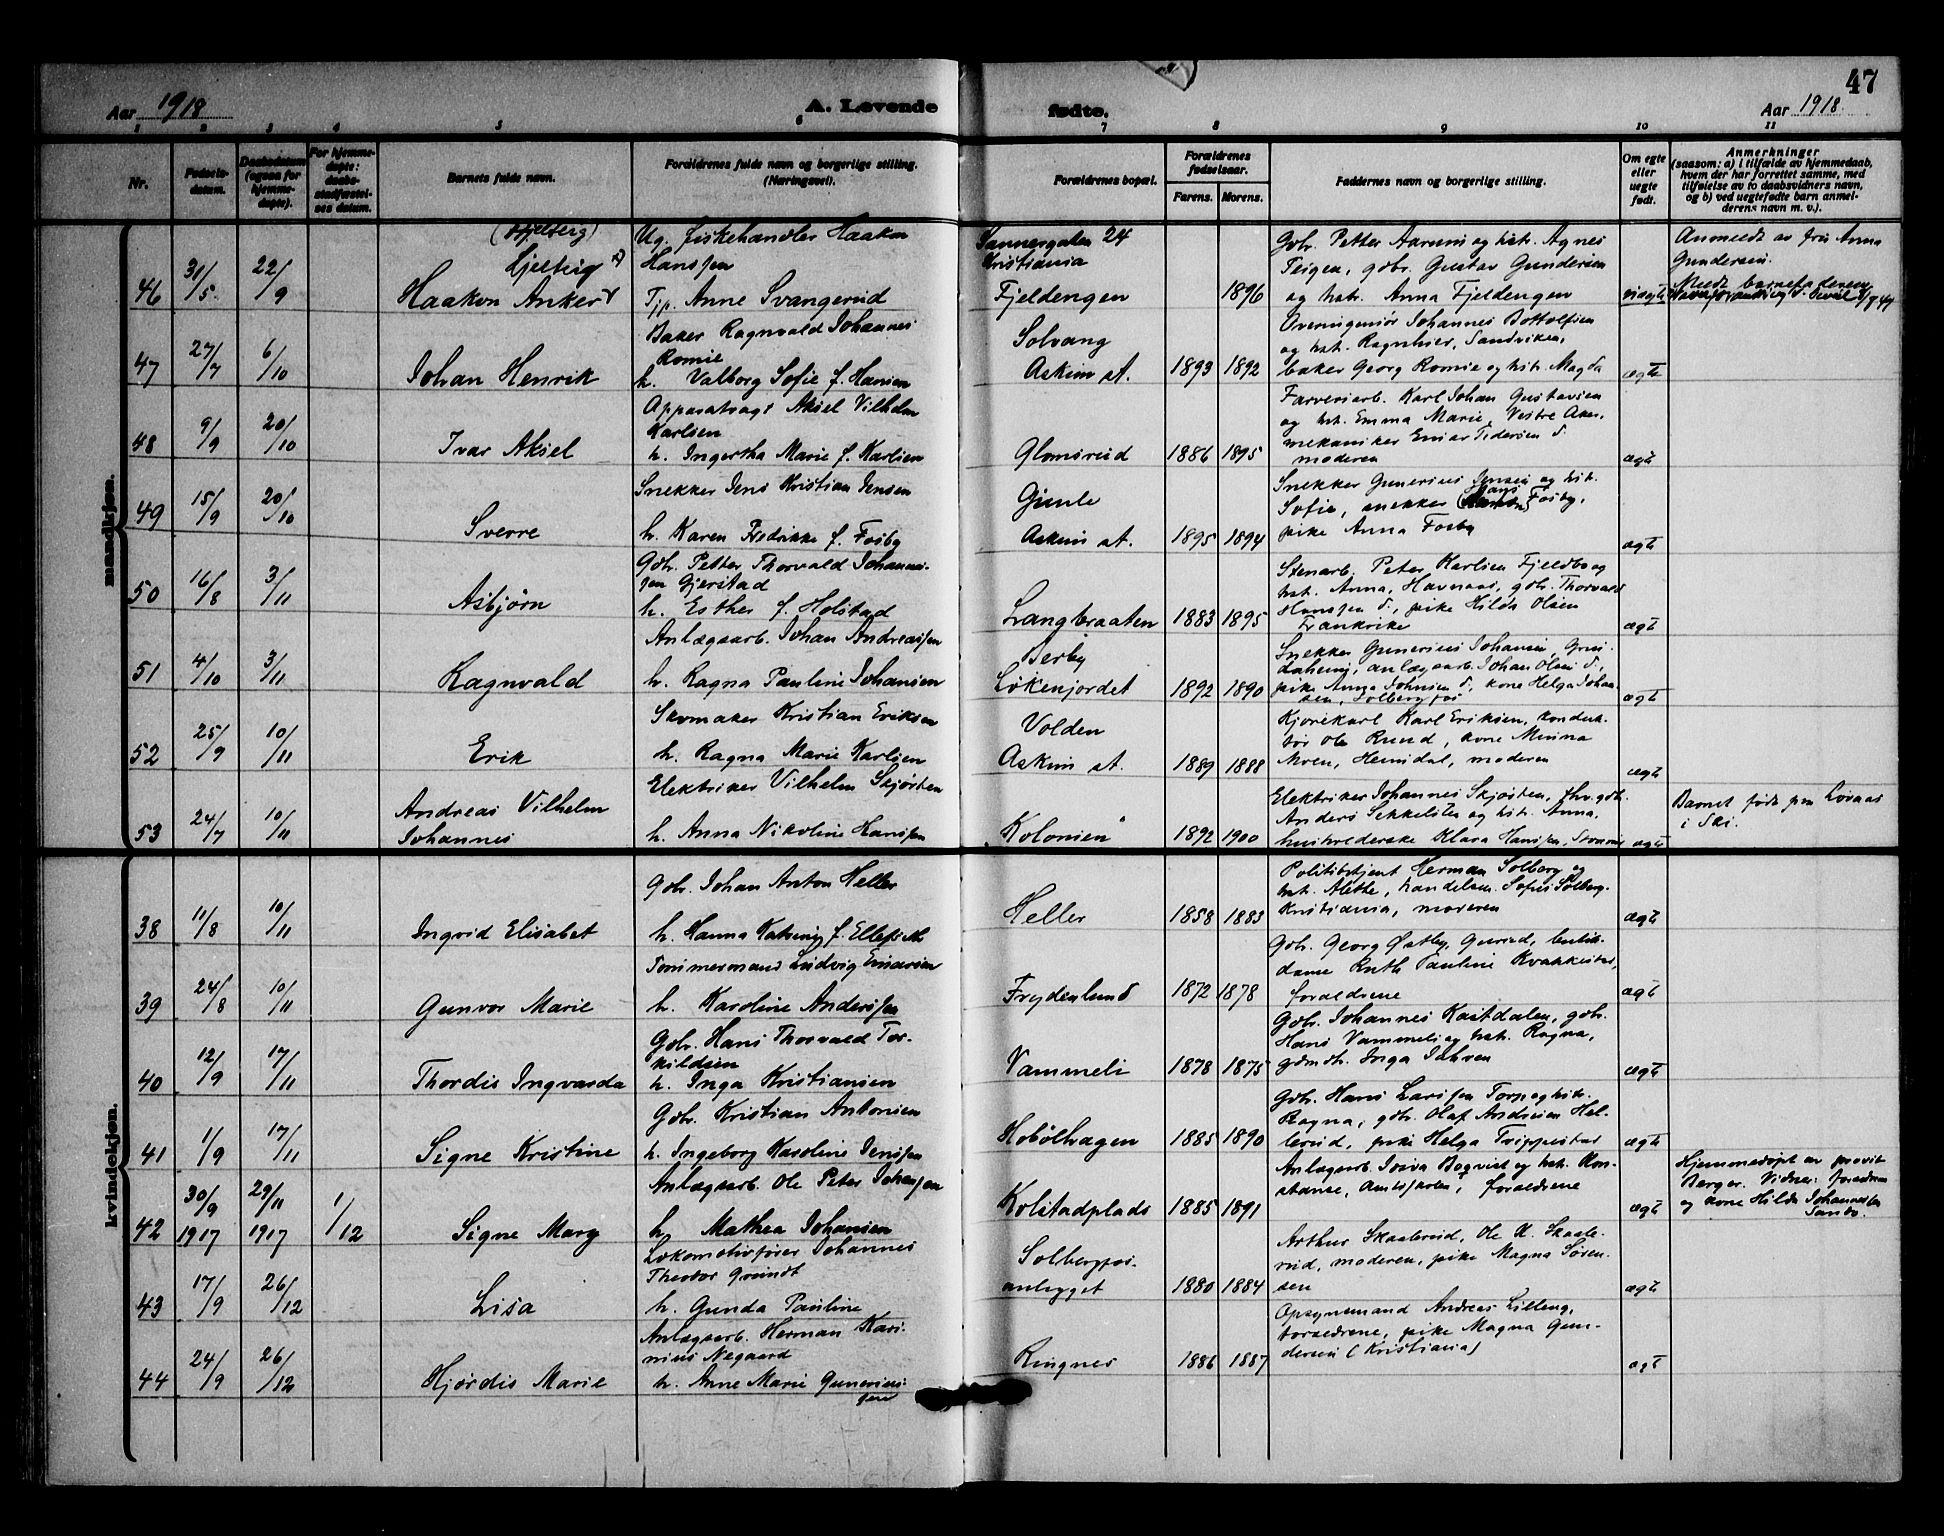 47
Aar 1918
A. Levende
fødte.
Aar 1918
1 2 3 4 5 6 7 8 9 10 11
Nr.
Fødsels-
datum.
Daabsdatum
(ogsaa for
hjemme-
døpte).
For hjemme-
døpte:
daabs-
stadfæstel-
ses datum.
Barnets fulde navn.
Forældrenes fulde navn og borgerlige stilling.
(Næringsvei).
Forældrenes bopæl.
Forældrenes
fødselsaar.
Farens. Morens.
Faddernes navn og borgerlige stilling.
Om egte
eller
uegte
født.
Anmerkninger
(saasom: a) i tilfælde av hjemmedaab,
hvem der har forrettet samme, med
tilføielse av to daabsvidners navn,
og b) ved uegtefødte barn anmel-
derens navn m. v.).
mandkjøn.
46 31/5 22/9
Haakon Anker
Ug. fiskehandler Haakon
Hanssen
Tjp. Anne Svangerud
Sannergaten 24
Kristiania
Fjeldengen
1896
Gbr. Petter Aarum og hst. Agnes
Teigen, gbr. Gustav Gundersen
og hst. Anna Fjeldengen
uægte
Anmeldt av frk Anna
Gundersen.
Meldt barnefaderen
47 27/7 6/10
Johan Henrik
Baker Ragnvald Johannes
Romie
h. Valborg Sofie f. Hansen
Solvang
Askim st.
1893 1892
Overingeniør Johannes Bottolfsen
og hst. Ragnhild, Sandviken,
baker Georg Romie og hst. Magda
ægte
48 9/9 20/10
Ivar Aksel
Apparatvagt Aksel Vilhelm
Karlsen
h. Ingertha Marie f. Karlsen
Glomsrud
1886 1895
Farveriarb. Karl Johan Gustavsen
og hst. Emma Marie, Vestre Aker,
mekaniker Einar Pedersen d.
moderen
ægt
49 15/9 20/10
Sverre
Snekker Jens Kristian Jensen
h. Karen Fredrikke f. Fosby
Gimle
Askim st.
1895 1894
Snekker Gunerius Jensen og hst.
Sofie, snekker Hans Fosby,
pike Anna Fosby
ægt
50 16/8 3/11
Asbjørn
Gbr. Petter Thorvald Johannes-
sen Gjerstad
h. Esther f. Holstad
Langbraaten
1883 1895
Stenarb. Peter Karlsen Fjeldbo og
hst. Anna, Havnaas, gbr. Thorvald
Hanssen d., pike Hilda Olsen
Frankrike
ægt
51 4/10 3/11
Ragnvald
Anlægsarb. Johan Andreassen
h. Ragna Pauline Johansen
Berby
Løkenjordet
1892 1890
Snekker Gunerius Johansen, Grin-
daheim, anlægsarb. Johan Olsen d.,
pike Anna Johnsen d., kone Helga Johan-
sen, Solbergfos
ægt
52 25/9 10/11
Erik
Skomaker Kristian Eriksen
h. Ragna Marie Karlsen
Volden
Askim st.
1889 1888
Kjørekarl Karl Eriksen, konduk-
tør Ole Ruud, kone Minna
Moen, Heimdal, moderen
ægt
53 24/7 10/11
Andreas Vilhelm
Johannes
Elektriker Vilhelm Skjøsten
h. Anna Nikoline Hanssen
"Kolonien"
1892 1900
Elektriker Johannes Skjøsten, fhv. gbr.
Anders Sekkelsten og hst. Anna,
husholderske Klara Hanssen,
ægt
Barnet født paa Løvaas
i Ski.
kvindekjøn.
38 11/8 10/11
Ingrid Elisabet
Gbr. Johan Anton Heller
h. Hanna Katring f. Ellefsæth
Heller
1858 1883
Politibetjent Herman Solberg og
hst. Alethe, handelsm. Sofus Solberg,
Kristiania, moderen
ægt
39 24/8 10/11
Gunvor Marie
Tømmermand Ludvig Einarsen
h. Karoline Anderssen
Frydenlund
1872 1878
Gbr. Georg Østby, Gurud, butik-
dame Ruth Pauline Kvakkestad,
forældrene
ægt
40 12/9 17/11
Thordis Ingvarda
Gbr. Hans Thorvald Tor-
kildsen
h. Inga Kristiansen
Vammeli
1878 1875
Gbr. Johannes Kastdalen, gbr.
Hans Vammeli og hst. Ragna,
gdmdt. Inga Idhren
ægt
41 1/9 17/11
Signe Kristine
Gbr. Kristian Antonsen
h. Ingeborg Karoline Jenssen
Hobølhagen
1885 1890
Gbr. Hans Larssen Torp og hst.
Ragna, gbr. Olaf Andersen Hel-
lerud, pike Helga Trippestad
ægt
42 30/9 1917 29/11 1917 1/12
Signe Marg
Anlægsarb. Ole Peter Johanssen
h. Mathea Johansen
Kolstadplads
1885 1891
Anlægsarb. Josva Bogvist og hst. Kon-
stanse, Amtsskolen, forældrene
ægt
Hjemmedøpt av provst
Berger. Vidner: forældrene
og kone Hilda Johannesen
Sandb.
43 17/9 26/12
Lisa
Lokomotivfører Johannes
Theodor Qvindt
h. Gunda Pauline
Solbergfos-
anlægget
1880 1884
Arthur Skaalerud, Ole K. Skaale-
rud, moderen, pike Magna Søren-
sen
ægt
44 24/9 26/12
Hjørdis Marie
Anlægsarb. Herman Kari-
nius Negaard
h. Anne Marie Gunerius-
sen
Ringnes
1886 1887
Opsynsmand Andreas Lilleng,
forældrene, pike Magna Gun-
dersen (Kristiania)
ægt